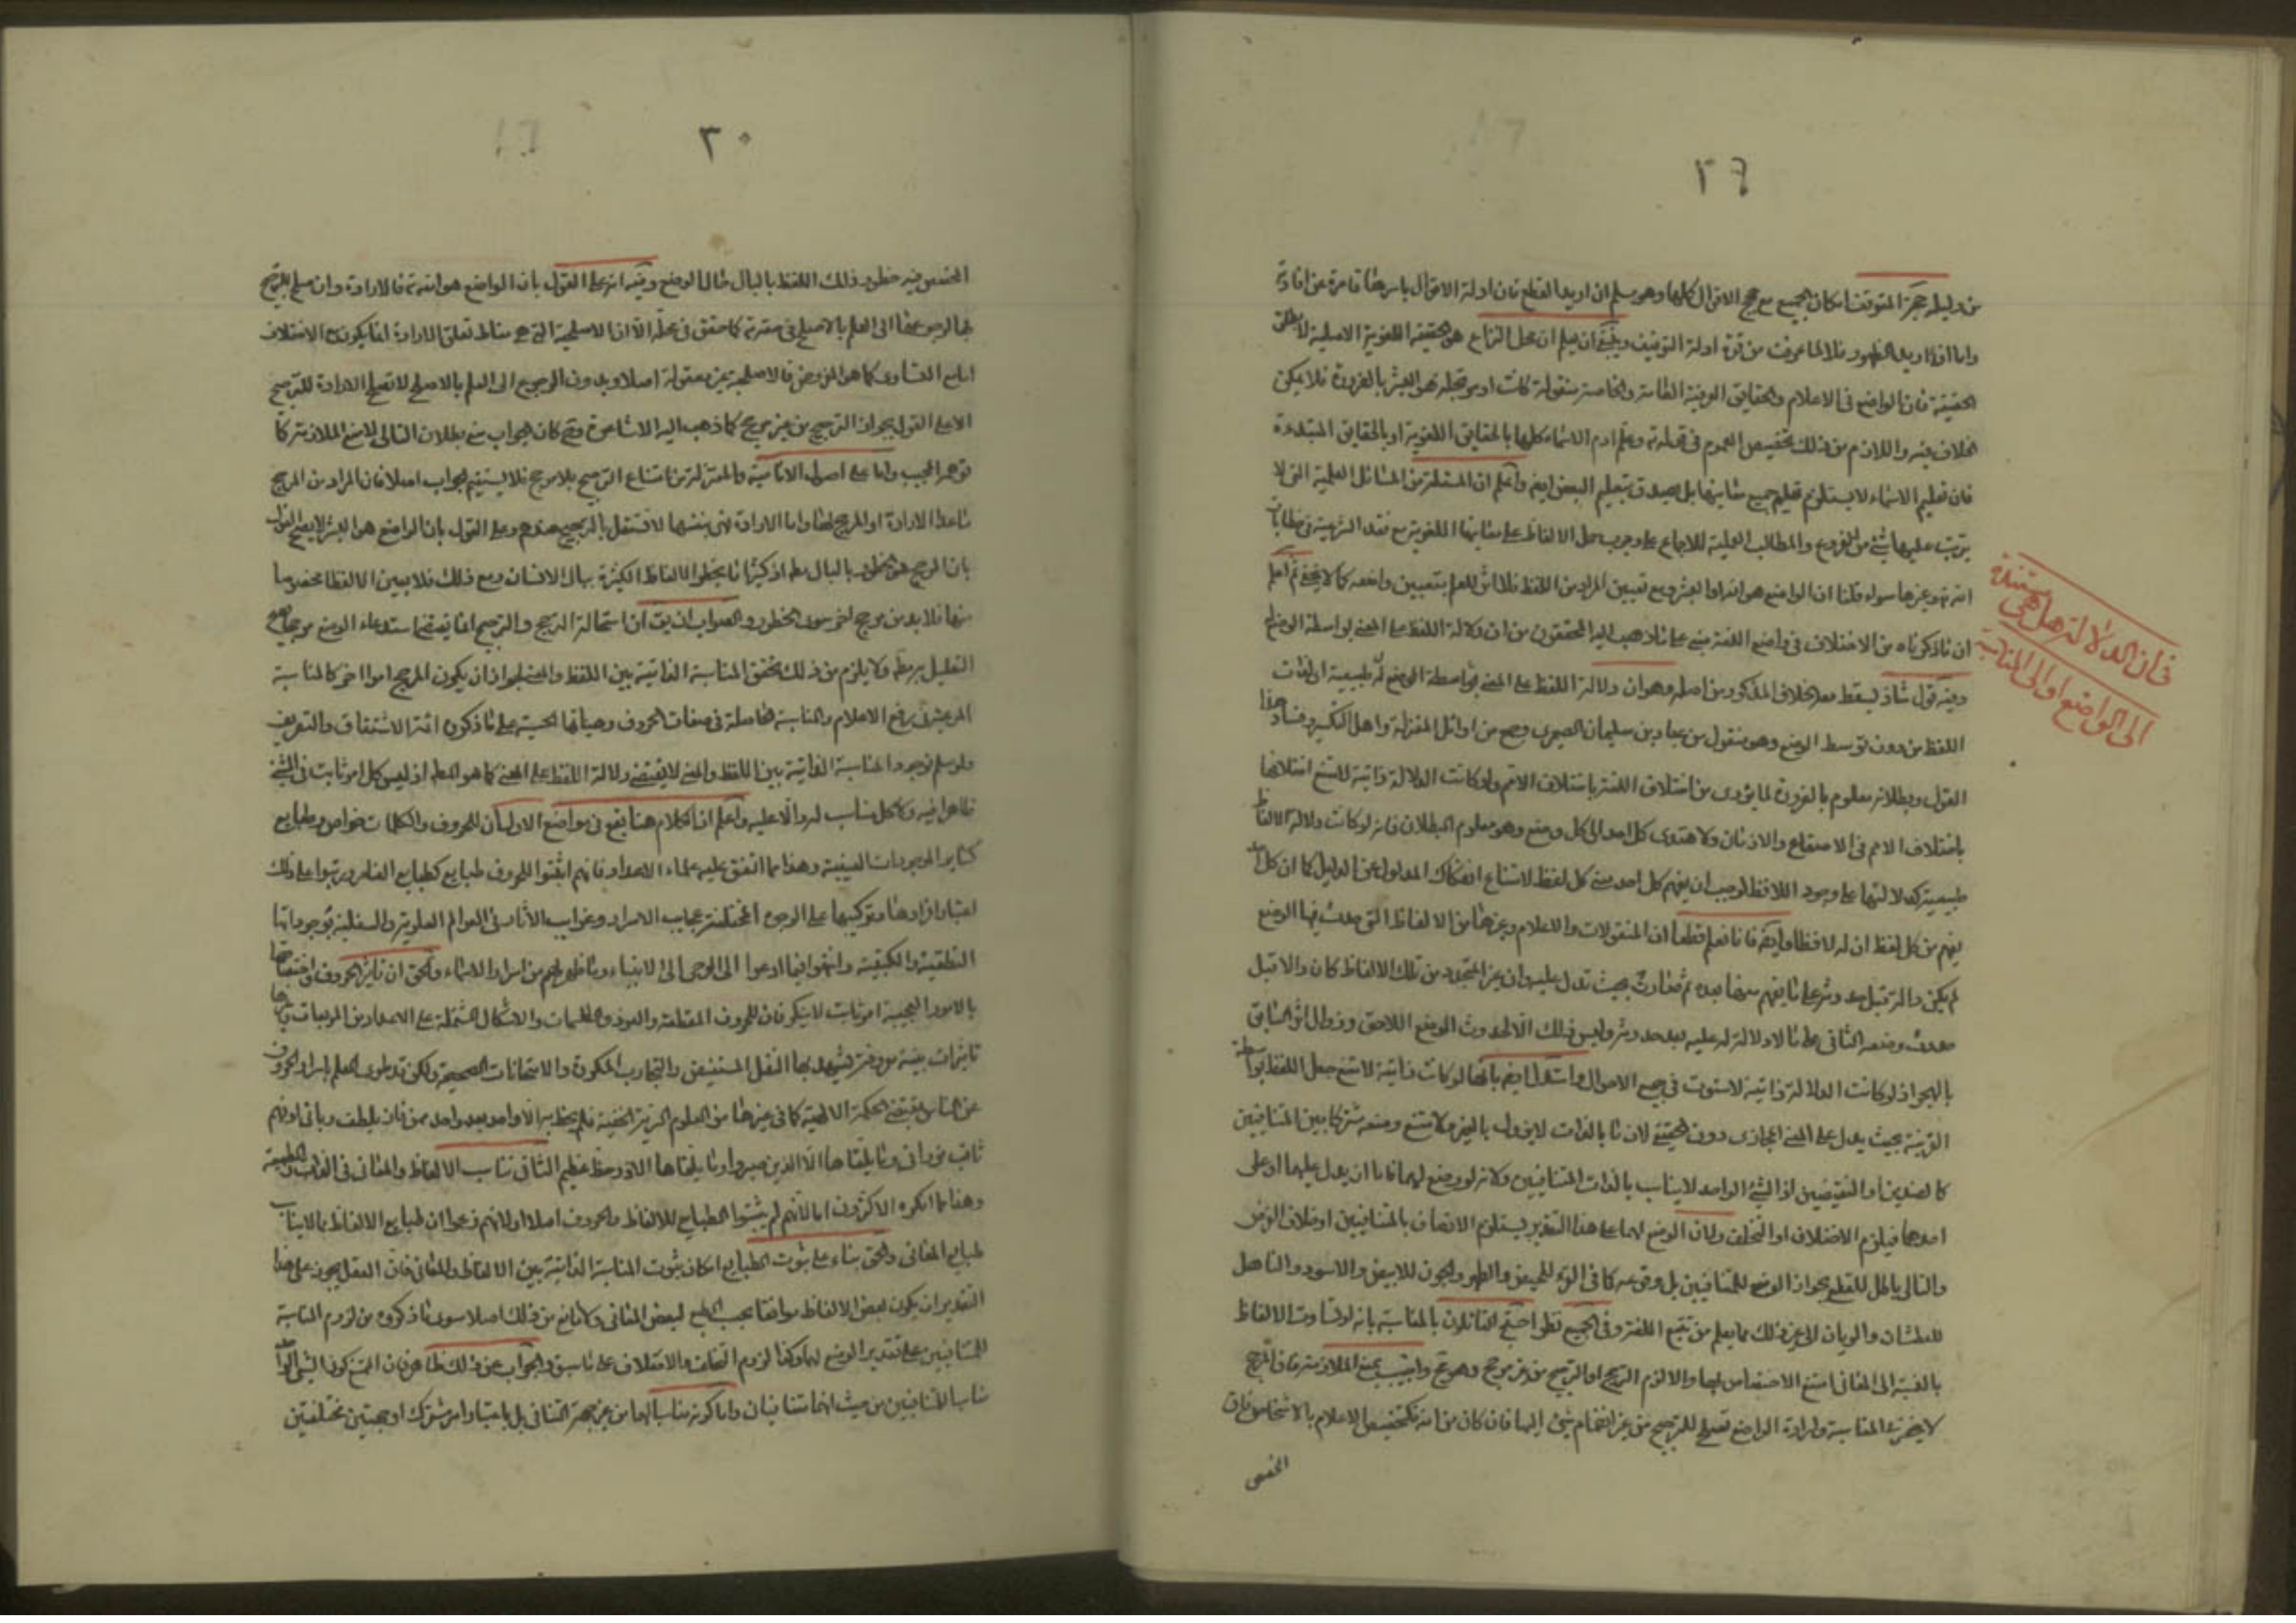 ٢٩
من دليله حجة المتوقف امكان الجميع مع حجج الاقوال كلها وهو مسلم ان اريد القطع فان ادلة الاقوال باسرها قاصرة عن افادته
واما اذا اريد الظهور فلا لما عرفت من قوة ادلة التوقيف وينبغي ان يعلم ان محل النزاع هو الحقيقة اللغوية الاصلية لا مطلق
الحقيقة فان الواضع في الاعلام والحقايق العرفية العامة والخاصة منقولة كانت او مرتجلة هو البشر بالضرورة فلا يمكن
الخلاف فيه واللازم من ذلك تخصيص العموم في قوله تع وعلم ادم الاسماء كلها بالحقايق اللغوية او بالحقايق المبتدءة
فان تعليم الاسماء لا يستلزم تعليم جميع معانيها بل يصدق بتعليم البعض ايضا واعلم ان المسئلة من المسائل العلمية التي لا
يترتب عليها شئ من الفروع والمطالب العملية للاجماع على وجوب حمل الالفاظ على معانيها اللغوية مع فقد الشرعية في خطابات
الله تع وغيرها سواء قلنا ان الواضع هو الله او البشر ومع تعيين المراد من اللفظ فلا اثر للعلم بتعيين واضعه كما لا يخفى ثم اعلم
ان ما ذكرناه من الاختلاف في واضع اللغة مبني على ما ذهب اليه المحققون من ان دلالة اللفظ على المعنى بواسطة الوضع
وفيه قول شاذ يسقط معه الخلاف المذكور من اصله وهو ان دلالة اللفظ على المعنى بواسطة الوضع بل طبيعية او لذات
اللفظ من دون توسط الوضع وهو منقول من عباد بن سليمان الصيمري وجمع من اوائل المعتزلة واهل التكسير وفساد هذا
القول وبطلانه معلوم بالضرورة لما يؤدى من اختلاف اللغة باختلاف الامم ولو كانت الدلالة ذاتية لامتنع اختلافها
باختلاف الامم في الاصقاع والازمان ولاهتدى كل احد الى كل وضع وهو معلوم البطلان فانه لو كانت دلالة الالفاظ
طبيعية كدلالتها على وجود اللافظ لوجب ان يفهم كل احد معنى كل لفظ لامتناع انفكاك المدلول عن الدليل كما ان كل احد
يفهم من كل لفظ ان له لافظا وايضا فانا نعلم قطعا ان المنقولات والاعلام وغيرها من الالفاظ التي حدث فيها الوضع
لم يكن دالة قبل حدوثه على ما يفهم منها بعده ثم صارت بحيث تدل عليه وان غير المتجدد من تلك الالفاظ كان دالا قبل
حدوث وضعه الثاني على ما لا دلالة له عليه بعد حدوثه وليس ذلك الا لحدوث الوضع اللاحق وزوال اثر السابق
بالهجر اذ لو كانت الدلالة ذاتية لاستوت في جميع الاحوال واستدل ايضا بانها لو كانت ذاتية لامتنع جعل اللفظ بواسطة
القرينة بحيث يدل على المعنى المجازى دون الحقيقي لان ما بالذات لا يزول بالغير ولامتنع وضعه مشتركا بين المتنافيين
كالضدين او النقيضين اذ الشئ الواحد لا يناسب بالذات المتنافيين ولانه لو وضع لهما فاما ان يدل عليهما او على
احدهما فيلزم الاختلاف او التخلف ولان الوضع لهما على هذا التقدير يستلزم الاتصاف بالمتنافيين او خلاف الفرض
والتالى باطل للقطع بجواز الوضع للمتنافيين بل وقوعه كما في القرء للحيض والطهر والجون للابيض والاسود والناهل
للعطشان والريان الى غير ذلك مما يعلم من تتبع اللغة وفي الجميع نظر احتج القائلون بالمناسبة بانه لو تساوت الالفاظ
بالنسبة الى المعاني امتنع الاختصاص بها والا لزم الترجح او الترجيح من غير مرجح وهو مح واجيب بمنع الملازمة فان المرجح
لا ينحصر في المناسبة وارادة الواضع تصلح للترجيح من غير انضمام شئ اليها فان كان من الله كتخصيص الاعلام بالاشخاص فان
المخصص
فان الدلالة هل هي مستندة
الى الواضع او الى المناسبة
٣٠
المخصص فيه خطور ذلك اللفظ بالبال حال الوضع وفيه انه على القول بان الواضع هو الله تع فالارادة وان صلح للترجيح
بالرجوع فيها الى العلم بالاصلح في حقه تع كما حقق في محله الا ان الاصلحية التي هي مناط تعلق الارادة انما يكون مع الاختلاف
اما مع التساوى كما هو المفروض فالاصلحية غير معقولة اصلا وبدون الرجوع الى العلم بالاصلح لا تصلح الارادة للترجيح
الا على القول بجواز الترجيح من غير مرجح كما ذهب اليه الاشاعرة وح كان الجواب منع بطلان التالى لا منع الملازمة كما
توهم المجيب واما على اصول الامامية والمعتزلة من امتناع الترجيح بلا مرجح فلا يستقيم الجواب اصلا فان المراد من المرجح
ما عدا الارادة او المرجح لها واما الارادة فهي بنفسها لا تستقل بالترجيح عندهم وعلى القول بان الواضع هو البشر لا يصح الجواب
بان المرجح هو الخطور بالبال مطلقا اذ كثيرا ما يخطر الالفاظ الكثيرة ببال الانسان ومع ذلك فلا يعين الا لفظا مخصوصا
منها فلا بد من مرجح اخر سوى الخطور والصواب ان يق ان استحالة الترجح والترجيح انما يقتضى استدعاء الوضع مرجحا
التعليل به مطلقا ولا يلزم من ذلك تحقق المناسبة الذاتية بين اللفظ والمعنى لجواز ان يكون المرجح امرا اخر كالمناسبة
المرعية في وضع الاعلام والمناسبة الحاصلة في صفات الحروف وهيأتها الحسية على ما ذكره ائمة الاشتقاق والتصريف
ولو سلم فوجود المناسبة الذاتية بين اللفظ والمعنى لا يقتضى دلالة اللفظ على المعنى كما هو المط اذ ليس كل امر ثابت في الشئ
ظاهرا فيه ولا كل مناسب له دالا عليه واعلم ان الكلام هنا يقع في مواضع الاول ان للحروف والكلمات خواص وطبايع
كساير الموجودات العينية وهذا مما اتفق عليه علماء الاعداد فانهم اثبتوا للحروف طبايع كطبايع العناصر ورتبوا على ذلك
اعتبار افرادها وتركيبها على الوجوه المختلفة عجايب الاسرار وغرايب الآثار في العوالم العلوية والسفلية بوجوداتها
النطقية والكتبية وانتهوا فيما ادعوا الى الوحى الى الانبياء وما ظهر لهم من اسرار الاسماء والحق ان تاثير الحروف واختصاصها
بالامور العجيبة امر ثابت لا ينكر فان للحروف المقطعة والعوذ والطلسمات والاشكال المشتملة على الاعداد من المربعات وغيرها
تاثيرات بينة معروفة يشهد بها النقل المستفيض والتجارب المكررة والامتحانات الصحيحة ولكن قد طوى العلم باسرار الحروف
عن الناس بمقتضى الحكمة الالهية كما في غيرها من العلوم الغريبة الخفية فلم يحظ به الا واحد بعد واحد ممن فاز بلطف ربانى او فهم
ثاقب نورانى وما يلقاها الا الذين صبروا وما يلقاها الا ذو حظ عظيم الثاني تناسب الالفاظ والمعاني في الذات والطبيعة
وهذا مما انكره الاكثرون اما لانهم لم يثبتوا الطبايع للالفاظ والحروف اصلا او لانهم زعموا ان طبايع الالفاظ مما لا يناسب
طبايع المعاني والحق بناء على ثبوت الطبايع امكان ثبوت المناسبة الذاتية بين الالفاظ والمعاني فان العقل يجوز على هذا
التقدير ان يكون بعض الالفاظ موافقا بحسب الطبع لبعض المعاني ولا مانع من ذلك اصلا سوى ما ذكروه من لزوم المناسبة
للمتنافيين على تقدير الوضع لهما وكذا لزوم التخلف والاختلاف على ما سبق والجواب عن ذلك ظاهر فان الممتنع كون الشئ الواحد
مناسبا للمتنافيين من حيث انهما متنافيان واما كونه مناسبا لهما من غير جهة التنافى بل باعتبار امر مشترك او جهتين مختلفتين